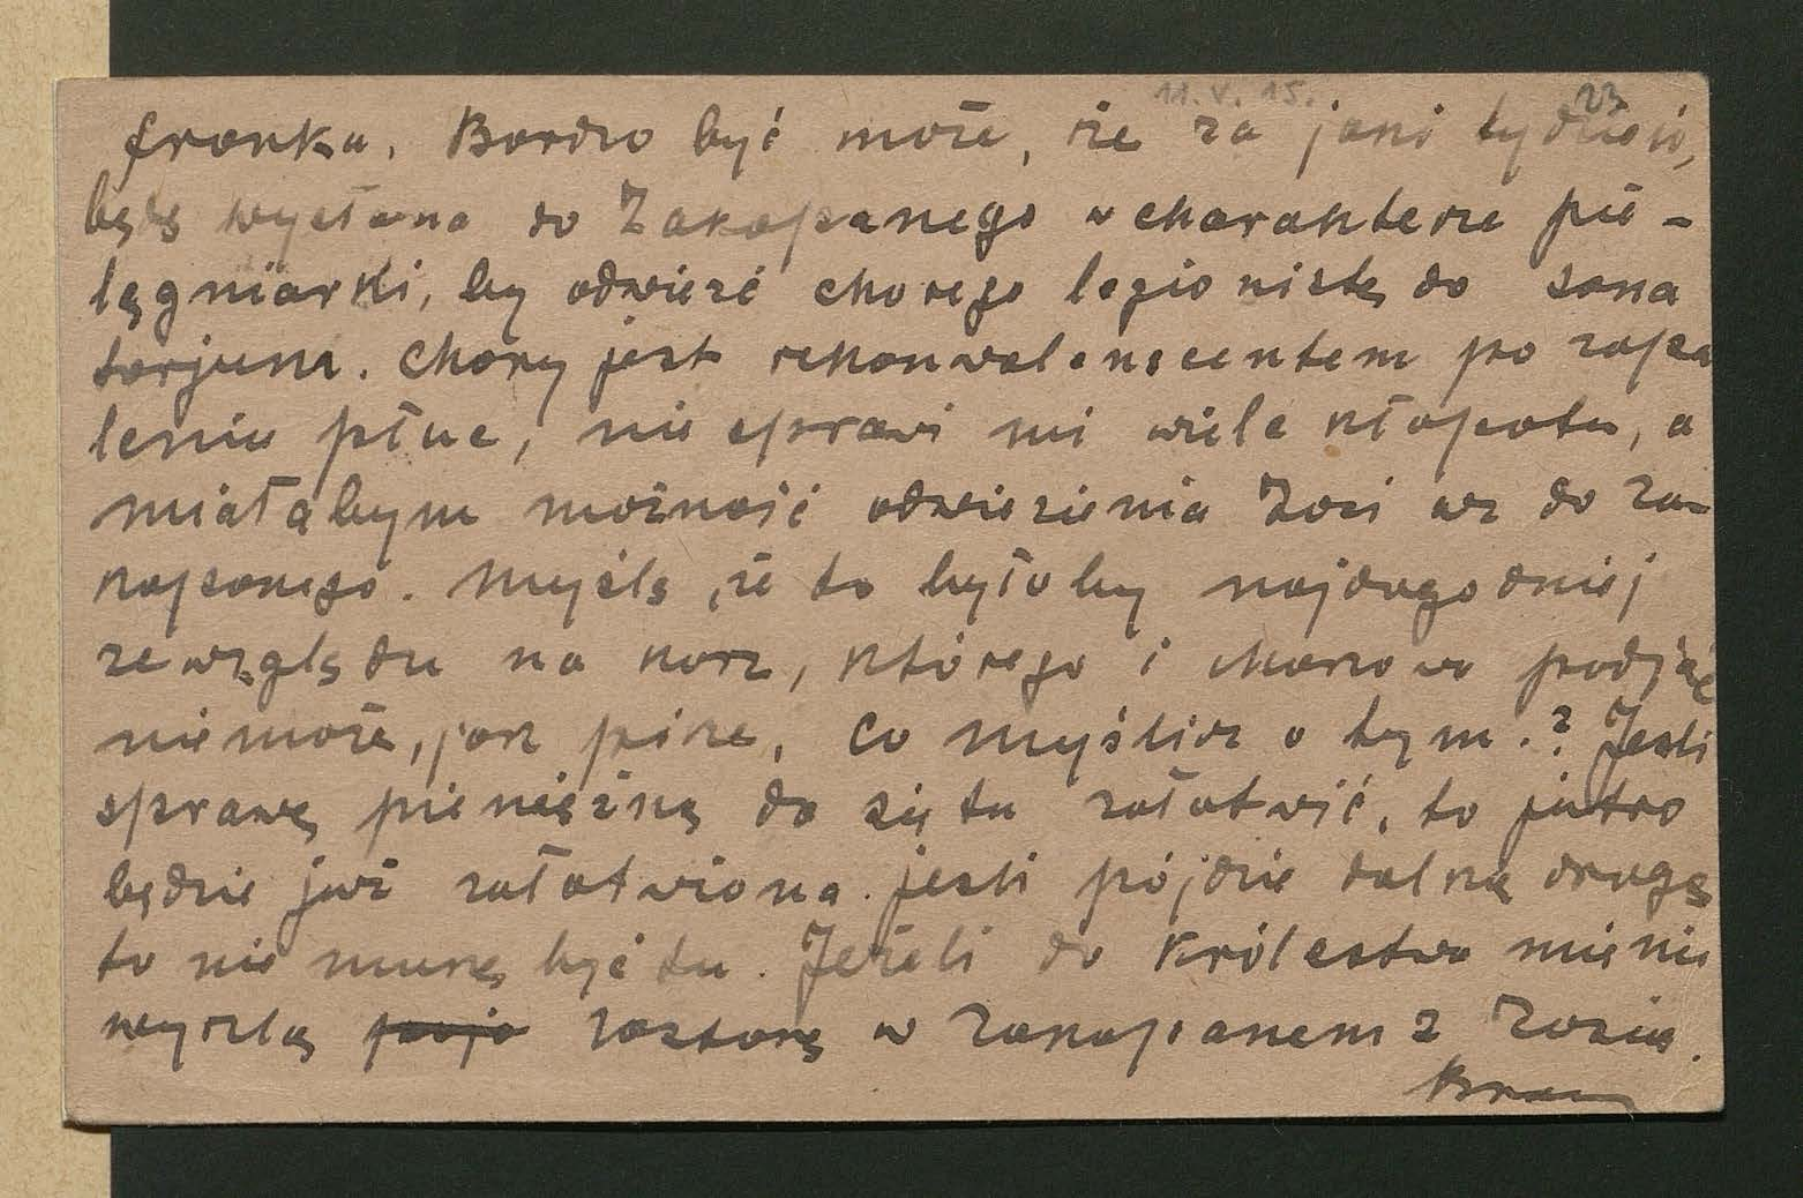 11.V.15.
23
franka. Bardzo być może, że za jaki tydzień,
będę wysłana do Zakopanego w charakterze pie-
lęgniarki, by odwieźć chorego legionistę do sana
torjum. Chory jest rekonwalenscentem po zapa
leniu płuc, nie sprawi mi wiele kłopotu, a
miałabym możność odwiezienia Zosi aż do Za-
kopanego. Myślę, że to byłoby najdogodniej
ze względu na koszt, którego i
nie może, jak pisze. Co myślisz o tym.? Jeśli
sprawę pieniężną da się tu załatwić, to jutro
będzie już załatwiona. Jeśli pójdzie dalszą drogą
to nie muszę być tu. Jeżeli do Królestwa mię nie
wyszlą zostanę w Zakopanem z Zosią.